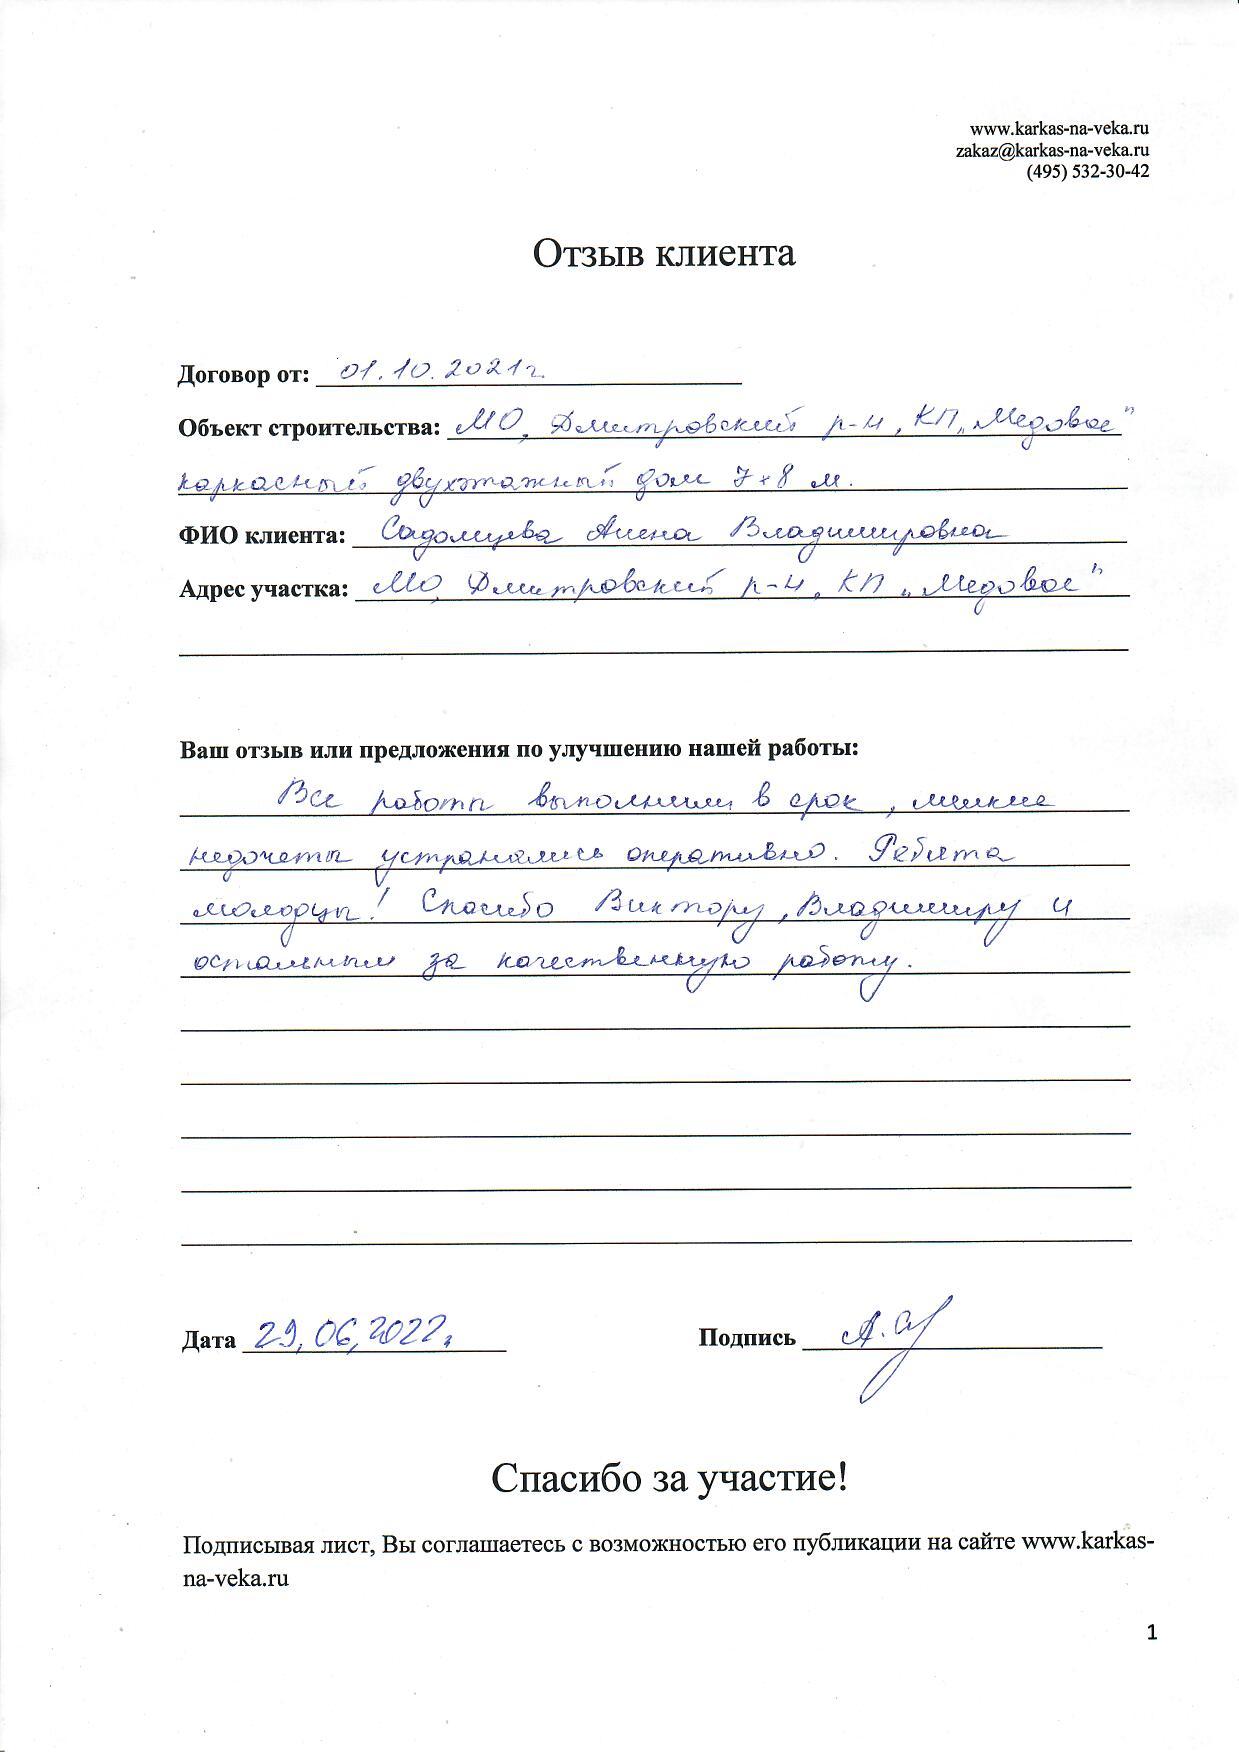 www.karkas-na-veka.ru
zakaz@karkas-na-veka.ru
(495) 532-30-42
Отзыв клиента
Договор от: 01.10.2021г.
Объект строительства: МО, Дмитровский р-н, КП „Медовое"
каркасный двухэтажный дом 7×8 м.
ФИО клиента: Садомцева Алена Владимировна
Адрес участка: МО, Дмитровский р-н, КП „Медовое"
Ваш отзыв или предложения по улучшению нашей работы:
Все работы выполнили в срок, мелкие
недочеты устранялись оперативно. Ребята
молодцы! Спасибо Виктору, Владимиру и
остальным за качественную работу.
Дата 29,06,2022г. Подпись
Спасибо за участие!
Подписывая лист, Вы соглашаетесь с возможностью его публикации на сайте www.karkas-
na-veka.ru
1